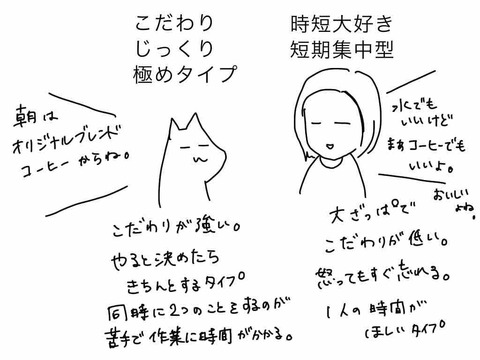 こだわり
じっくり
極めタイプ
朝は
オリジナルブレンド
コーヒーからね。
こだわりが強い。
やると決めたら
きちんとするタイプ
同時に2つのことをするのが
苦手で作業に時間がかかる。
時短大好き
短期集中型
水でも
いいけど
まぁコーヒーでも
いいよ。
おいしい
よね。
大ざっぱで
こだわりが低い。
怒ってもすぐ忘れる。
1人の時間が
ほしいタイプ